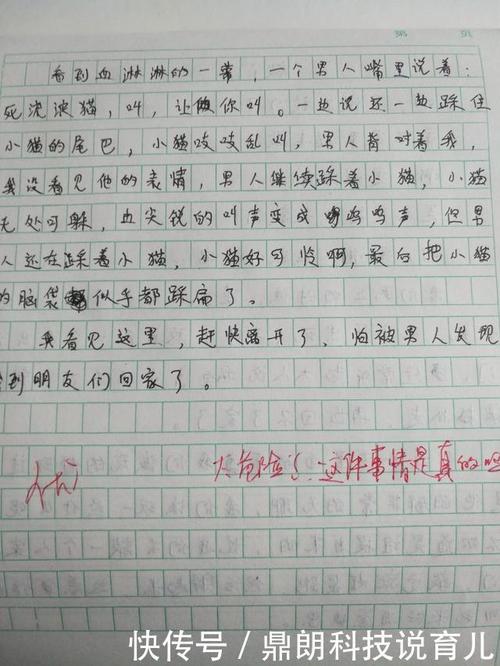 看到血淋淋的一幕，一个男人嘴里说着：
死流浪猫，叫，让你叫。一边说还一边踩住
小猫的尾巴，小猫吱吱乱叫，男人背对着我，
我没看见他的表情，男人继续踩着小猫，小猫
无处可躲，由尖锐的叫声变成呜呜声，但男
人还在踩着小猫，小猫好可怜啊，最后把小猫
的脑袋似乎都踩扁了。
我看见这里，赶快离开了，怕被男人发现
到朋友们回家了。
优
太危险了！这件事情是真的吗
快传号／鼎朗科技说育儿